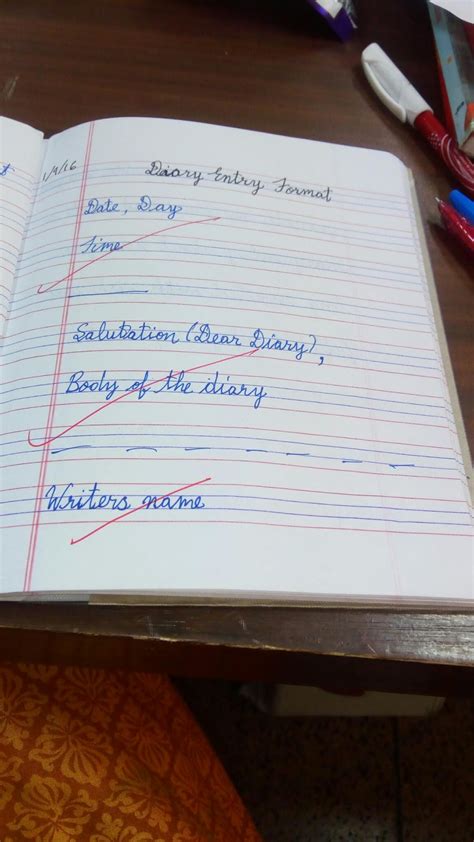 1/9/16
Diary Entry Format
Date, Day
Time
Salutation (Dear Diary),
Body of the diary
Writers name